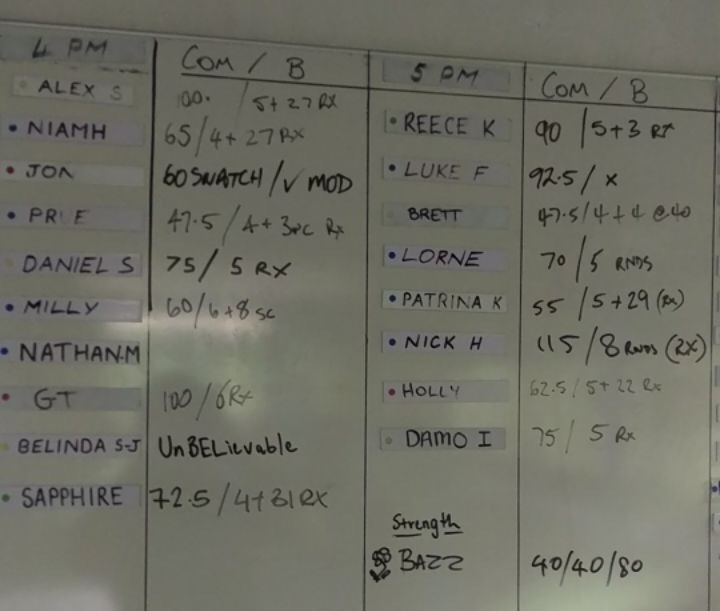 4 PM COM / B
ALEX S 00. / 5+27 RX
NIAMH 65/4+27 RX
JON 60 SNATCH / V MOD
47.5 / 4+3 RX
DANIEL S 75 / 5 RX
MILLY 60/6+8 SC
NATHAN.M
GT 100/6 RX
BELINDA S-J UnBELievable
SAPPHIRE 72.5 / 4+31 RX
5 PM COM / B
REECE K 90 / 5+3 RX
LUKE F 92.5 / X
BRETT 47.5/4+4 @40
LORNE 70 / 5 RNDS
PATRINA K 55 / 5+29 (RX)
NICK H 115 / 8 RNDS (RX)
HOLLY 62.5 / 5+22 RX
DAMO I 75 / 5 RX
Strength
BAZZ 40/40/80